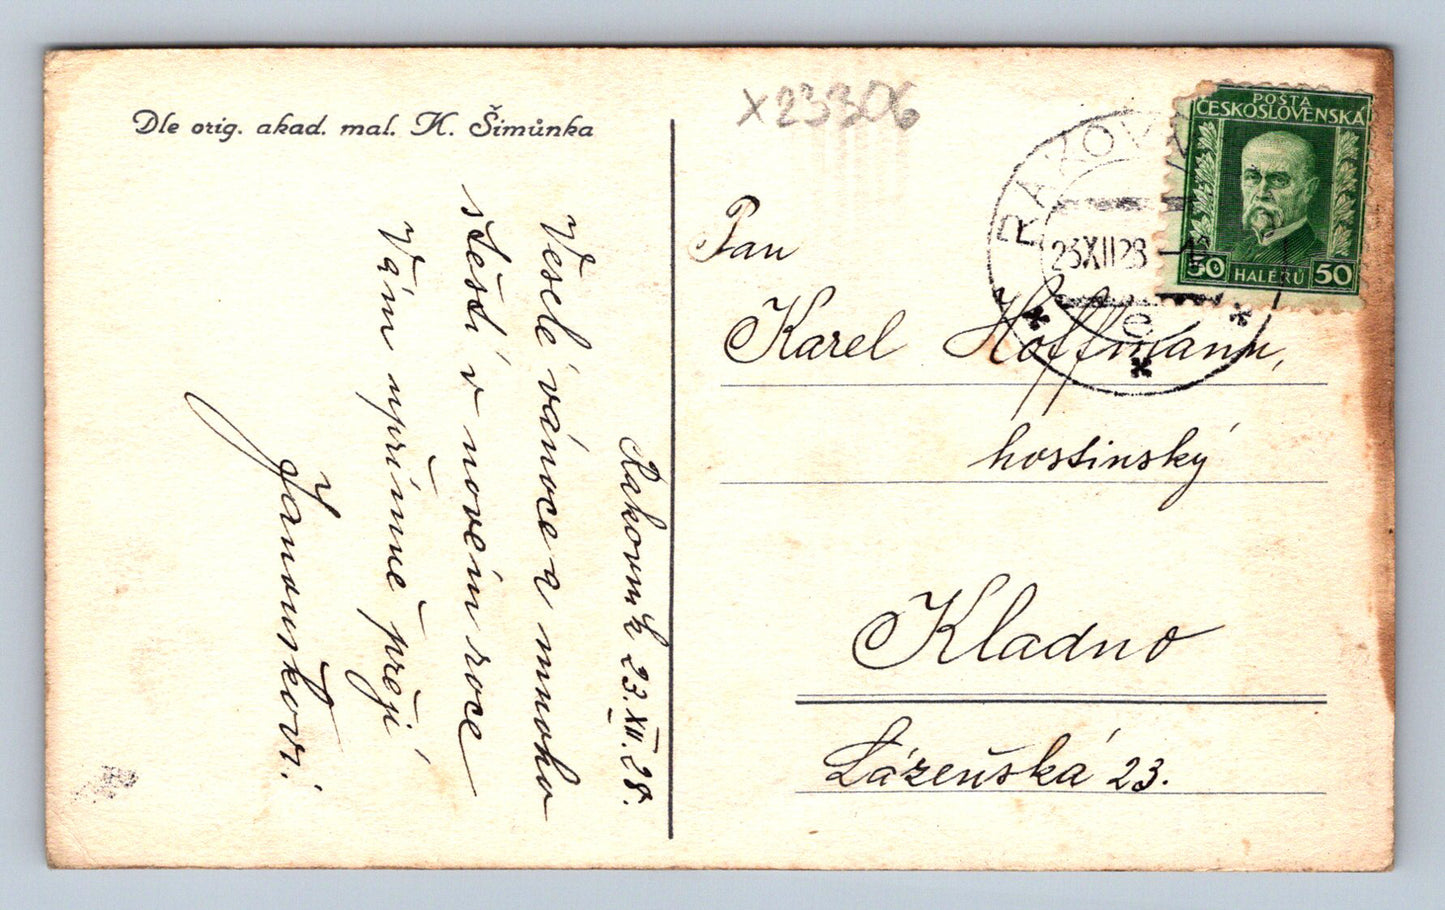 Dle orig. akad. mal. K. Šimůnka
X23306
Rakovník 23.XII.28.
Veselé vánoce a mnoho
štěstí v novém roce
Vám upřímně přejí
Janouškovi.
POŠTA
ČESKOSLOVENSKÁ
50 HALÉŘŮ 50
RAKOV
23XII28
e
Pan
Karel Hoffmann,
hostinský
Kladno
Lázeňská 23.